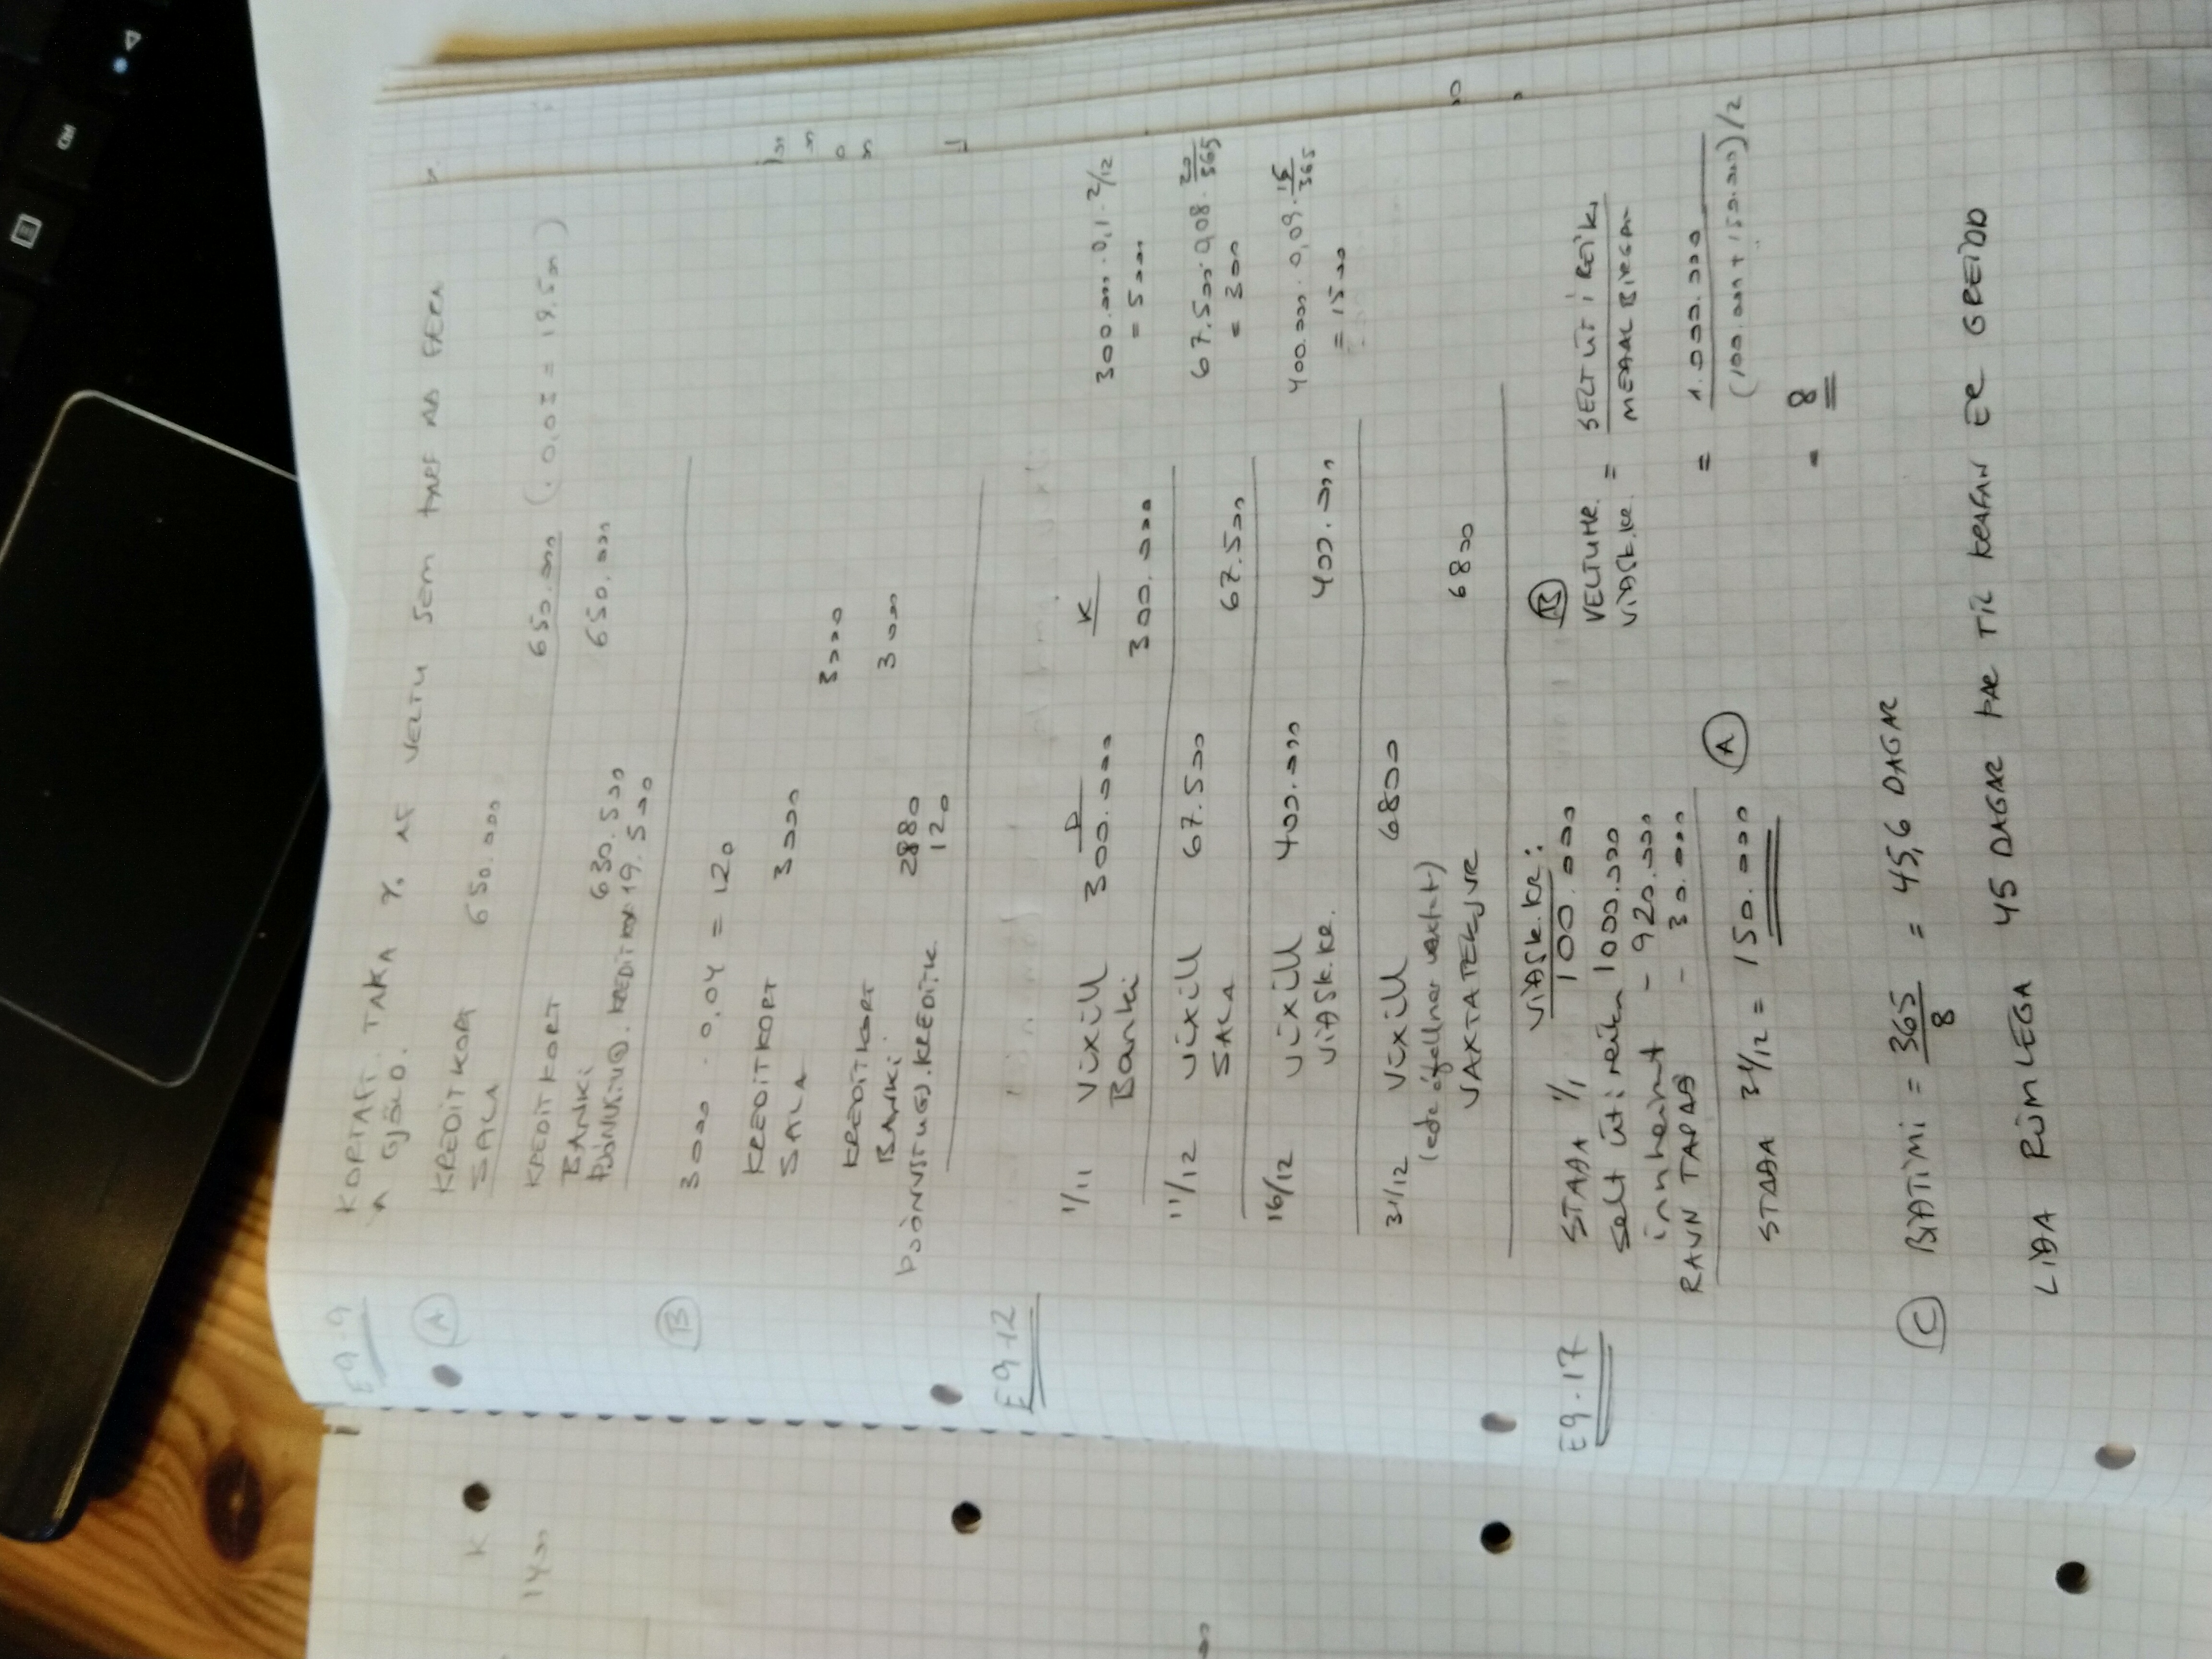 E9-9
KORTAFT. TAKA % AF VELTU SEM ÞARF AÐ FÆRA
Á GJÖLD.
A
KREDITKORT 650.000
SALA 650.000 (· 0,03 = 19.500)
KREDITKORT 650.000
BANKI 630.500
ÞJÓNUSTUG. KREDITKO 19.500
B
3000 · 0,04 = 120
KREDITKORT 3000
SALA 3000
KREDITKORT 3000
BANKI 2880
ÞJÓNUSTUGJ. KREDITK 120
E9-12
D K
1/11 Víxill 300.000 300.000 · 0,1 · 2/12
Banki 300.000 = 5000
11/12 víxill 67.500 67.500 · 0,08 · 20/365
SALA 67.500 = 300
16/12 víxill 400.000 400.000 · 0,09 · 15/365
VIÐSK.KR. 400.000 = 1500
31/12 Víxill 6800
(eða áfallnar vextir)
VAXTATEKJUR 6800
E9-17
VIÐSK.KR:
STAÐA 1/1 100.000
selt út í reikn 1000.000
innheimt - 920.000
RAUN TAPAÐ - 30.000
STAÐA 31/12 = 150.000 A
B
VELTUHR. VIÐSK.KR. = SELT ÚT Í REIKN / MEÐAL BIRGÐIR
= 1.000.000 / (100.000 + 150.000)/2
= 8
C BIÐTÍMI = 365/8 = 45,6 DAGAR
LÍÐA RÚMLEGA 45 DAGAR ÞAR TIL KRAFAN ER GREIDD
K
1400